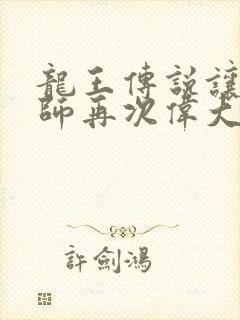 龍王傳說讓
師再次偉大
許劍鴻